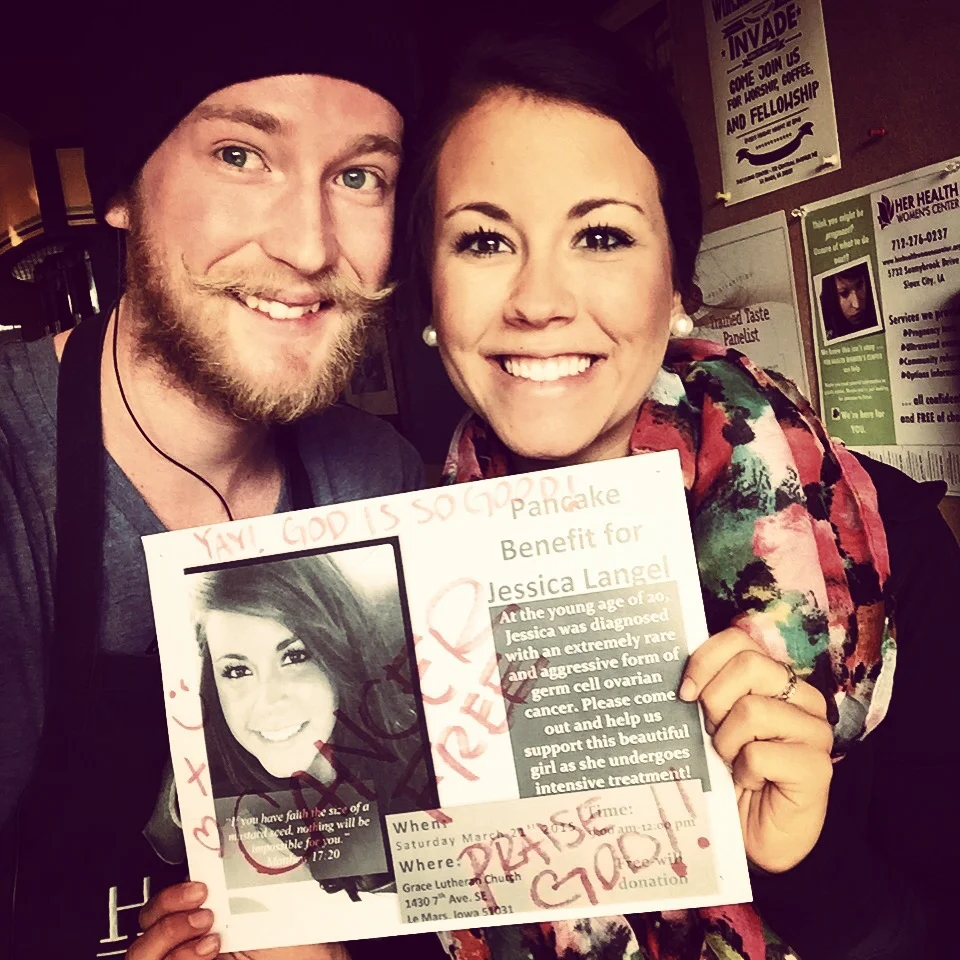 INVADE
COME JOIN US
FOR WORSHIP, COFFEE,
AND FELLOWSHIP
HER HEALTH
WOMEN'S CENTER
712-276-0237
5732 Sunnybrook Drive
Sioux City, IA
Services we
...all
and FREE of
Think you might be
pregnant?
Unsure of what to do
next?
We're here for
YOU.
Trained Taste
Panelist
YAY! GOD IS SO GOOD!
Pancake
Benefit for
Jessica Langel
At the young age of 20,
Jessica was diagnosed
with an extremely rare
and aggressive form of
germ cell ovarian
cancer. Please come
out and help us
support this beautiful
girl as she undergoes
intensive treatment!
CANCER
FREE
"If you have faith the size of a
mustard seed, nothing will be
impossible for you."
Matthew 17:20
When:
Saturday March 21st 2015
Where:
Grace Lutheran Church
1430 7th Ave. SE
Le Mars, Iowa 51031
Time:
12:00 pm
Free-will
donation
PRAISE
GOD!!
H